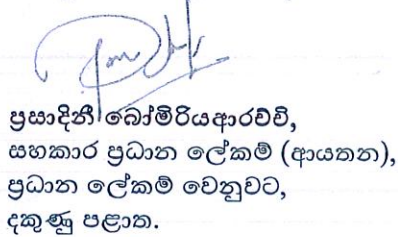 ප්‍රසාදිනී බෝමිරියආරච්චි,
සහකාර ප්‍රධාන ලේකම් (ආයතන),
ප්‍රධාන ලේකම් වෙනුවට,
දකුණු පළාත.